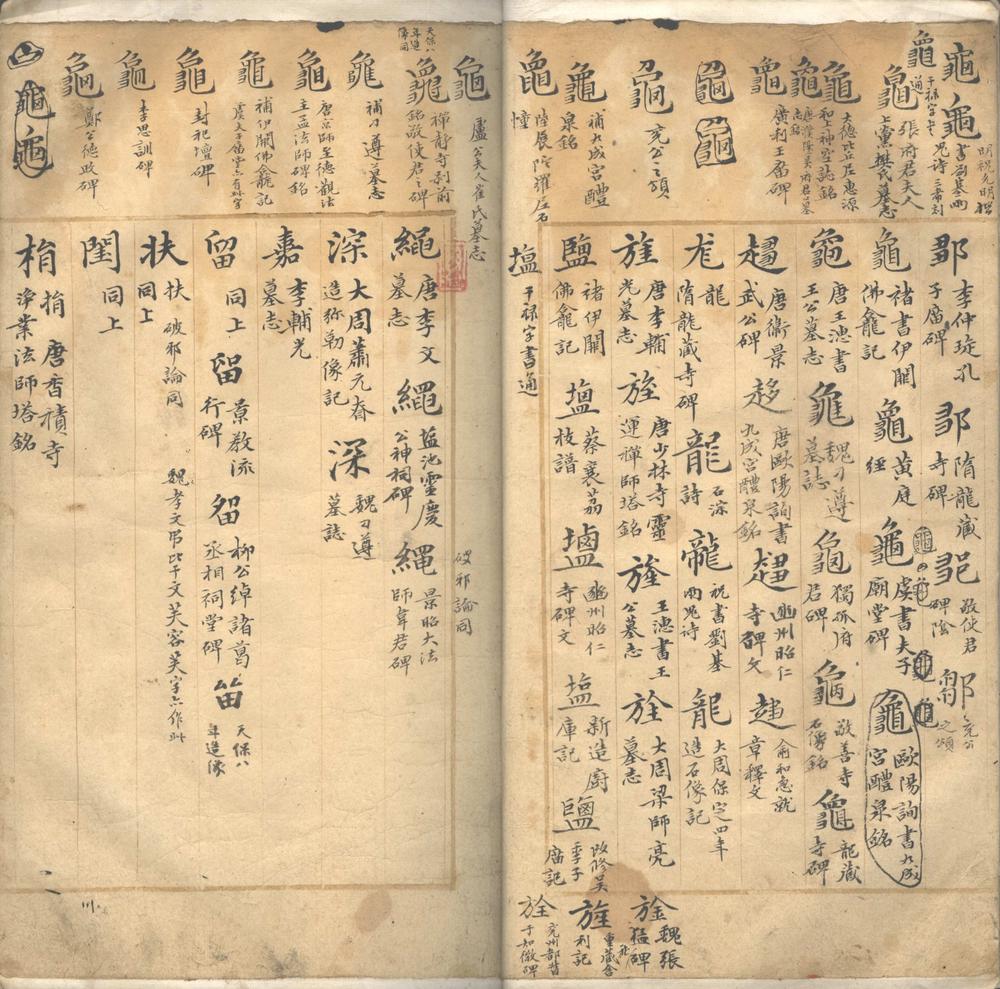 龜 龜
明祝允明楷書劉基兩鬼詩 二希刻
龜 干祿字書通
龜 張府君夫人上黨樊氏墓志
龜 大德比丘居惠源和上神空誌銘
龜 唐濮陽吳府君墓志銘
龜 廣利王庿碑
龜
龜
龜 兗公之頌
龜 補九成宮醴泉銘
龜 陸展陀羅尼石幢
李仲琁孔子庿碑
隋龍藏寺碑
敬使君碑陰
鄒 兗公之頌
龜 褚書伊闕佛龕記
龜 黃庭經
龜 虞書夫子廟堂碑
龜 歐陽詢書九成宮醴泉銘
龜 唐王德書王公墓志
龜 魏刁遵墓誌
龜 獨孤府君碑
龜 敬善寺石像銘
龜 龍藏寺碑
趨 唐衛景武公碑
趍 唐歐陽詢書九成宮醴泉銘
趨 幽州昭仁寺碑文
趨 俞和急就章釋文
尨 龍 隋龍藏寺碑
龍 石淙詩
龍 祝書劉基兩鬼詩
龍 大周保定四年造石像記
旌 唐李輔光墓志
旌 唐少林寺靈運禪師塔銘
旌 王德書王公墓志
旌 大周梁師亮墓志
鹽 褚伊闕佛龕記
塩 蔡襄荔枝譜
鹽 幽州昭仁寺碑文
塩 新造廚庫記
鹽 改修吳季子庿記
塩 干祿字書通
魏張猛碑
重藏舍利記
兗州都督于知微碑
龜 盧公夫人崔氏墓志
天保八年造像同
龜 禪靜寺刹前銘敬使君之碑
龜 補刁遵墓志
龜 唐宗師至德觀法主孟法師碑銘
龜 補伊闕佛龕記
龜 封祀壇碑
龜 李思訓碑
龜 鄭公德政碑
龜 龜
破邪論同
繩 唐李文墓志
繩 盐池靈慶公神祠碑
繩 景昭大法師韋君碑
深 大周蕭元眘造弥勒像記
深 魏刁遵墓誌
嘉 李輔光墓志
留 同上
留 景教流行碑
留 柳公綽諸葛丞相祠堂碑
留 天保八年造像
扶 扶 同上
破邪論同
魏孝文弔比干文芙容芙字亦作此
閏 同上
捐 捐 唐香積寺淨業法師塔銘